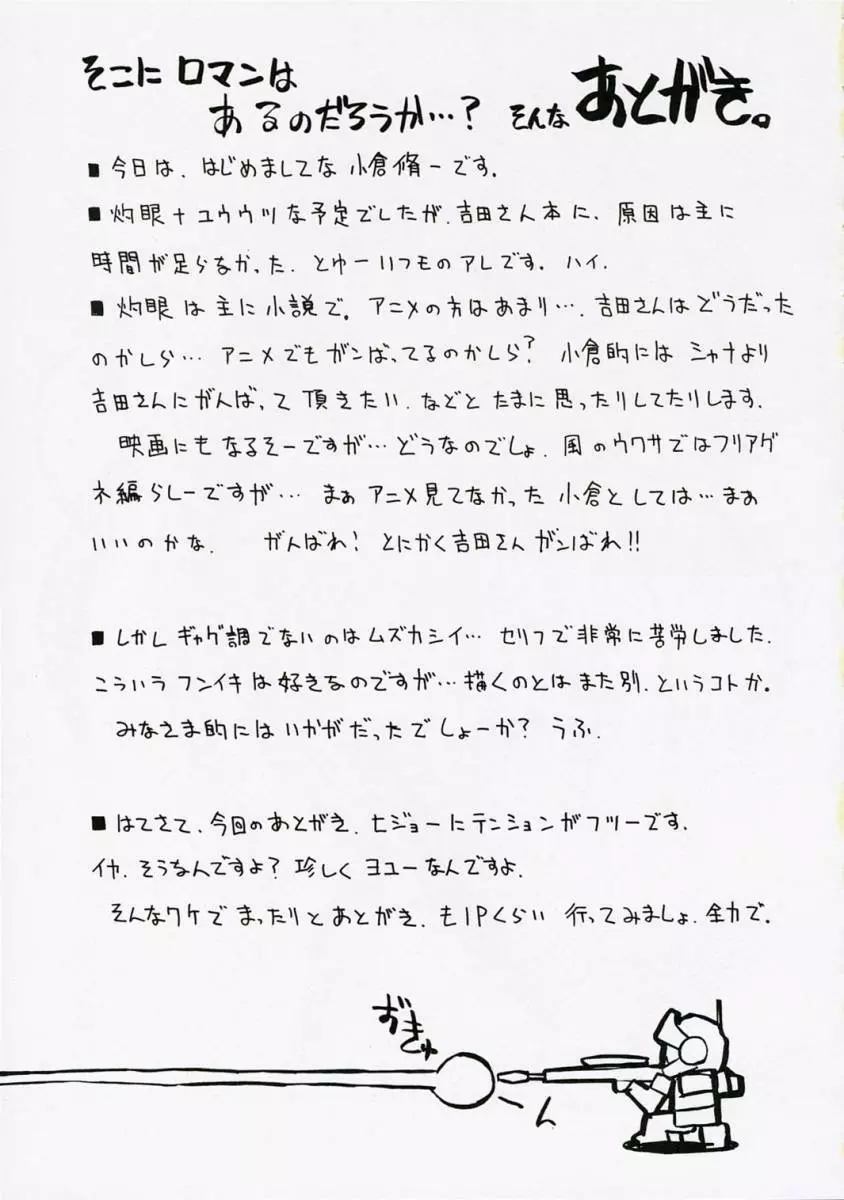 そこに ロマンは
あるのだろうか…? そんな あとがき。
■ 今日は、はじめましてな 小倉脩一です。
■ 灼眼+ユウウツな予定でしたが、吉田さん本に、原因は主に
時間が足らなかった、とゆーいつものアレです。ハイ、
■ 灼眼は主に小説で。アニメの方はあまり…、吉田さんはどうだった
のかしら… アニメでもガンばってるのかしら? 小倉的には シャナより
吉田さんにがんばって頂きたい、などと たまに思ったりしてたりします。
映画にもなるそーですが… どうなのでしょ、風のウワサではフリアグ
ネ編らしーですが… まぁ アニメ見てなかった 小倉としては… まぁ
いいのかな、 がんばれ! とにかく吉田さん ガンばれ!!
■ しかし ギャグ調でないのは ムズカシイ… セリフで非常に苦労しました、
こういう フンイキは好きなのですが… 描くのとは また別、というコトか。
みなさま的には いかがだったでしょーか? うふ、
■ はてさて、今回のあとがき、ヒジョーにテンションがフツーです、
イヤ、そうなんですよ? 珍しく ヨユーなんですよ、
そんなワケで まったりと あとがき、も1Pくらい 行ってみましょ、全力で。
おきゅ
ーん